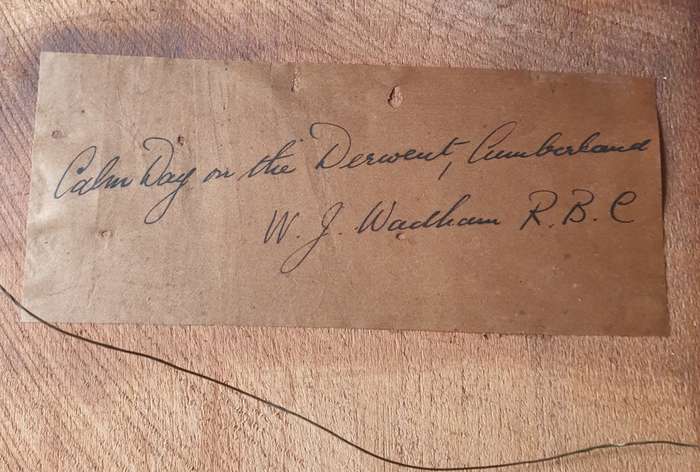 Calm Day on the Derwent, Cumberland
W. J. Wadham R. B. C